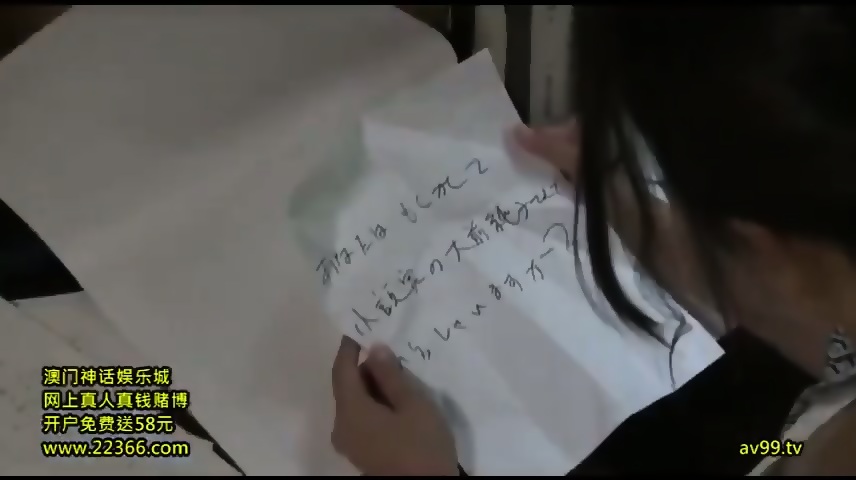 あなたは もしかして
小説家の大前
しゃいますか
澳门神话娱乐城
网上真人真钱赌博
开户免费送58元
www.22366.com
av99.tv